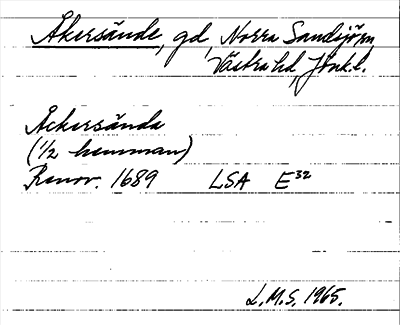 Åkersände, gd, Norra Sandsjö sn,
Västra hd, Jönk.l.
Åckersända
(1/2 hemman)
Renov. 1689 LSA E³²
L.M.S. 1965.